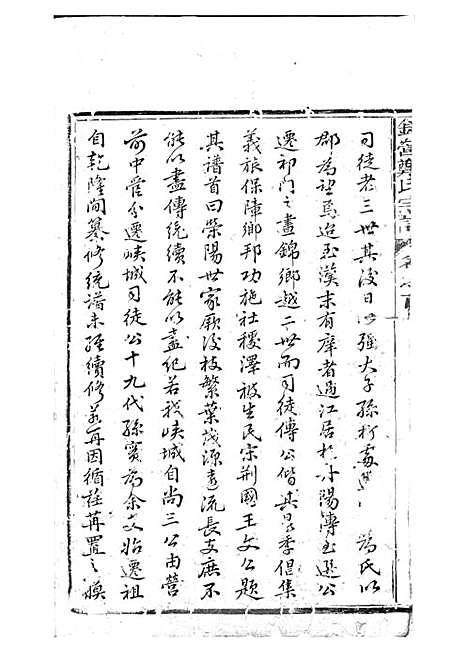 司徒者三世其後日以強大子孫 為氏以
郡為望焉迨至漢末有庠者過江居於丹陽傳至選公
遷祁門之晝錦鄉越二世而司徒傳公偕其昆季倡集
義旅保障鄉邦功施社稷澤被生民宋荊國王文公題
其譜首曰滎陽世家厥後枝繁葉茂源遠流長支庶不
能以盡傳統續不能以盡紀若我峽城自尚三公由營
前中營分遷峽城司徒公十九代孫寶為余支始遷祖
自乾隆間纂修統譜未經續修若再因循荏苒置之煥
鄭氏宗譜